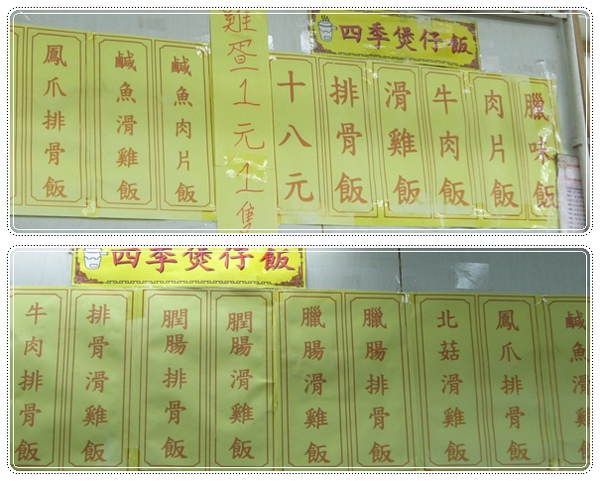 四季煲仔飯
臘味飯
肉片飯
牛肉飯
滑雞飯
排骨飯
十八元
雞蛋1元1隻
鹹魚肉片飯
鹹魚滑雞飯
鳳爪排骨飯
四季煲仔飯
鹹魚滑雞飯
鳳爪排骨飯
北菇滑雞飯
臘腸排骨飯
臘腸滑雞飯
膶腸滑雞飯
膶腸排骨飯
排骨滑雞飯
牛肉排骨飯